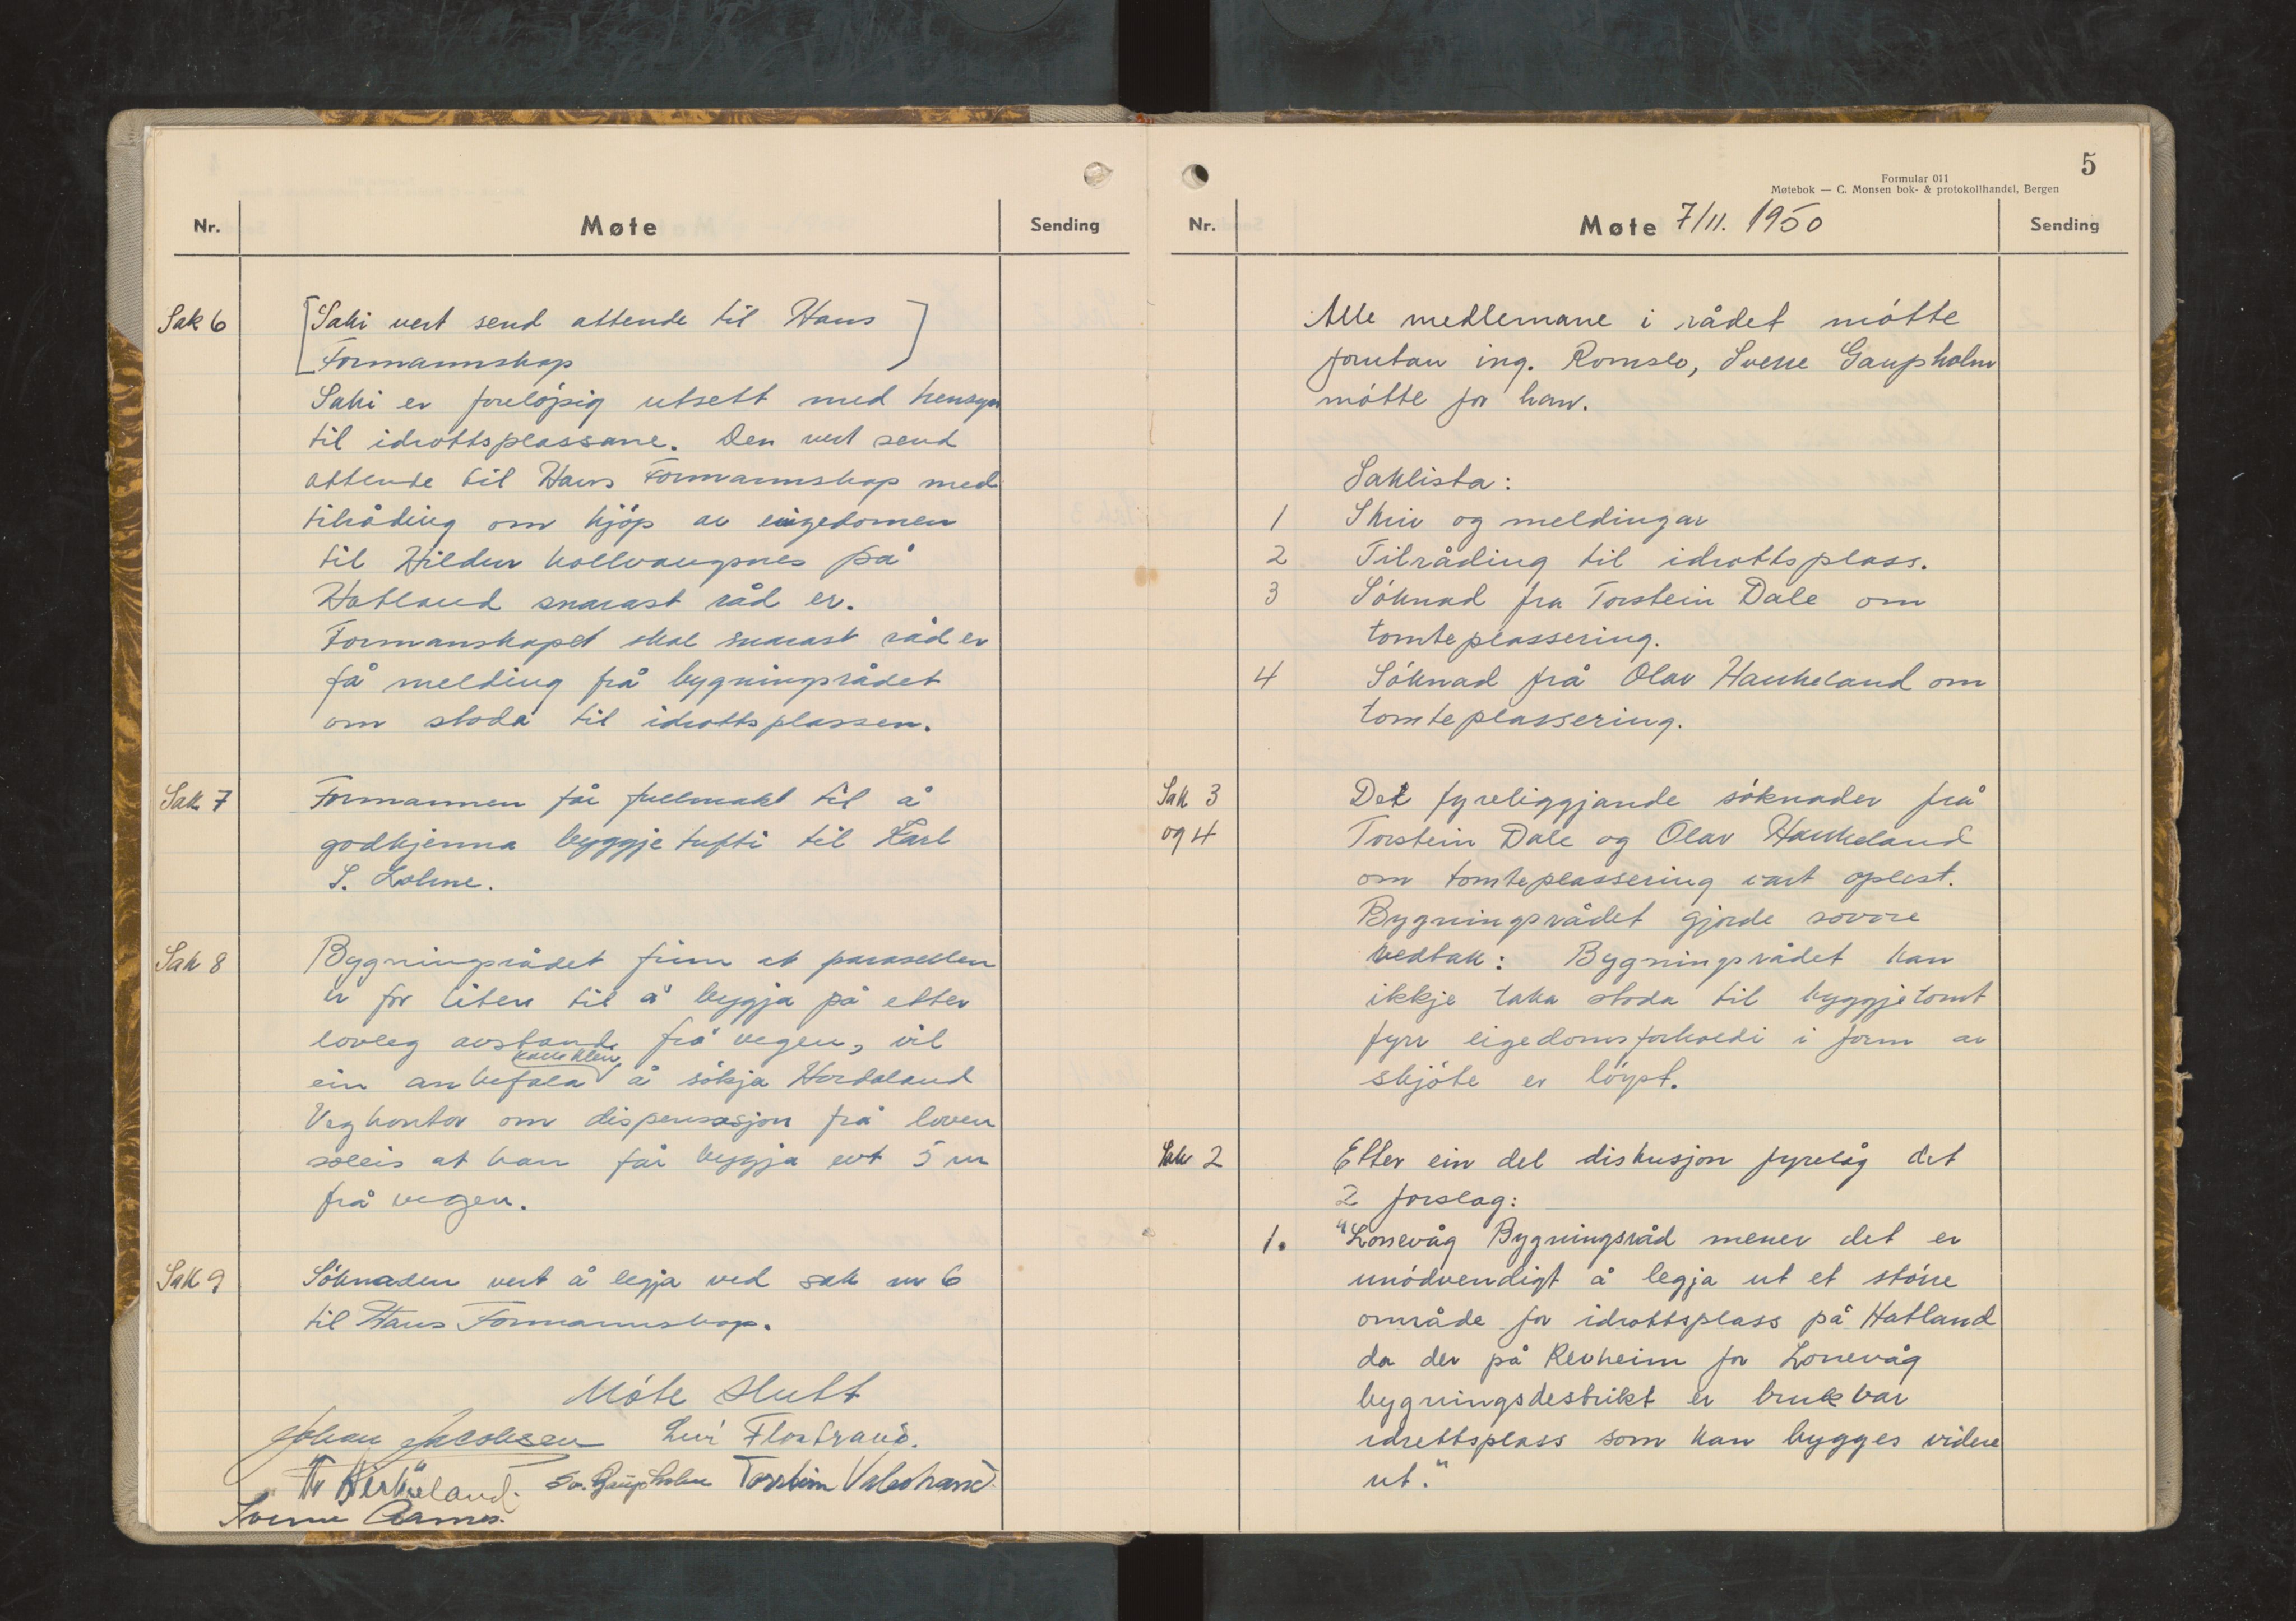 Nr. Møte Sending
Sak 6 [Saki vert send attende til Haus
Formannskap]
Saki er foreløpig utsett med hensyn
til idrottsplassane. Den vert send
attende til Haus Formannskap med
tilråding om kjöp av eigedomen
til Hildur Kollvangsnes på
Hatland snarast råd er.
Formanskapet skal snarast råd er
få melding frå bygningsrådet
om stoda til idrottsplassen.
Sak 7 Formannen får fullmakt til å
godkjenna byggje tufti til Karl
S. Lohne.
Sak 8 Bygningsrådet finn at parasellen
er for liten til å byggja på etter
lovleg avstand frå vegen, vil
ein anbefala å sökja Hordaland
Vegkontor om dispensasjon frå loven
soleis at han får byggja evt 5 m
frå vegen.
Sak 9 Söknaden vert å legja ved sak nr 6
til Haus Formannskap.
Möte Slutt
Johan Jacobsen
Sv. Gaupholm Torstein
Sverre
5
Formular 011
Møtebok — C. Monsen bok- & protokollhandel, Bergen
Nr. Møte 7/11. 1950 Sending
Alle medlemane i rådet mötte
forutan ing. Romslo, Sverre Gaupholm
mötte for han.
Saklista:
1 Skriv og meldingar
2 Tilråding til idrottsplass.
3 Söknad fra Torstein Dale om
tomteplassering.
4 Söknad frå Olav Haukeland om
tomteplassering.
Sak 3 Det fyreliggjande söknader frå
og 4 Torstein Dale og Olav Haukeland
om tomteplassering vart oplest.
Bygningsrådet gjorde sovore
vedtak: Bygningsrådet kan
ikkje taka stoda til byggjetomt
fyrr eigedomsforholdi i form av
skjöte er löyst.
Sak 2 Etter ein del diskusjon fyrelåg det
2 forslag:
1. "Lonevåg Bygningsråd mener det er
unödvendigt å legja ut et större
område for idrottsplass på Hatland
da der på Revheim for Lonevåg
bygningsdestrikt er brukbar
idrettsplass som kan bygges videre
ut."